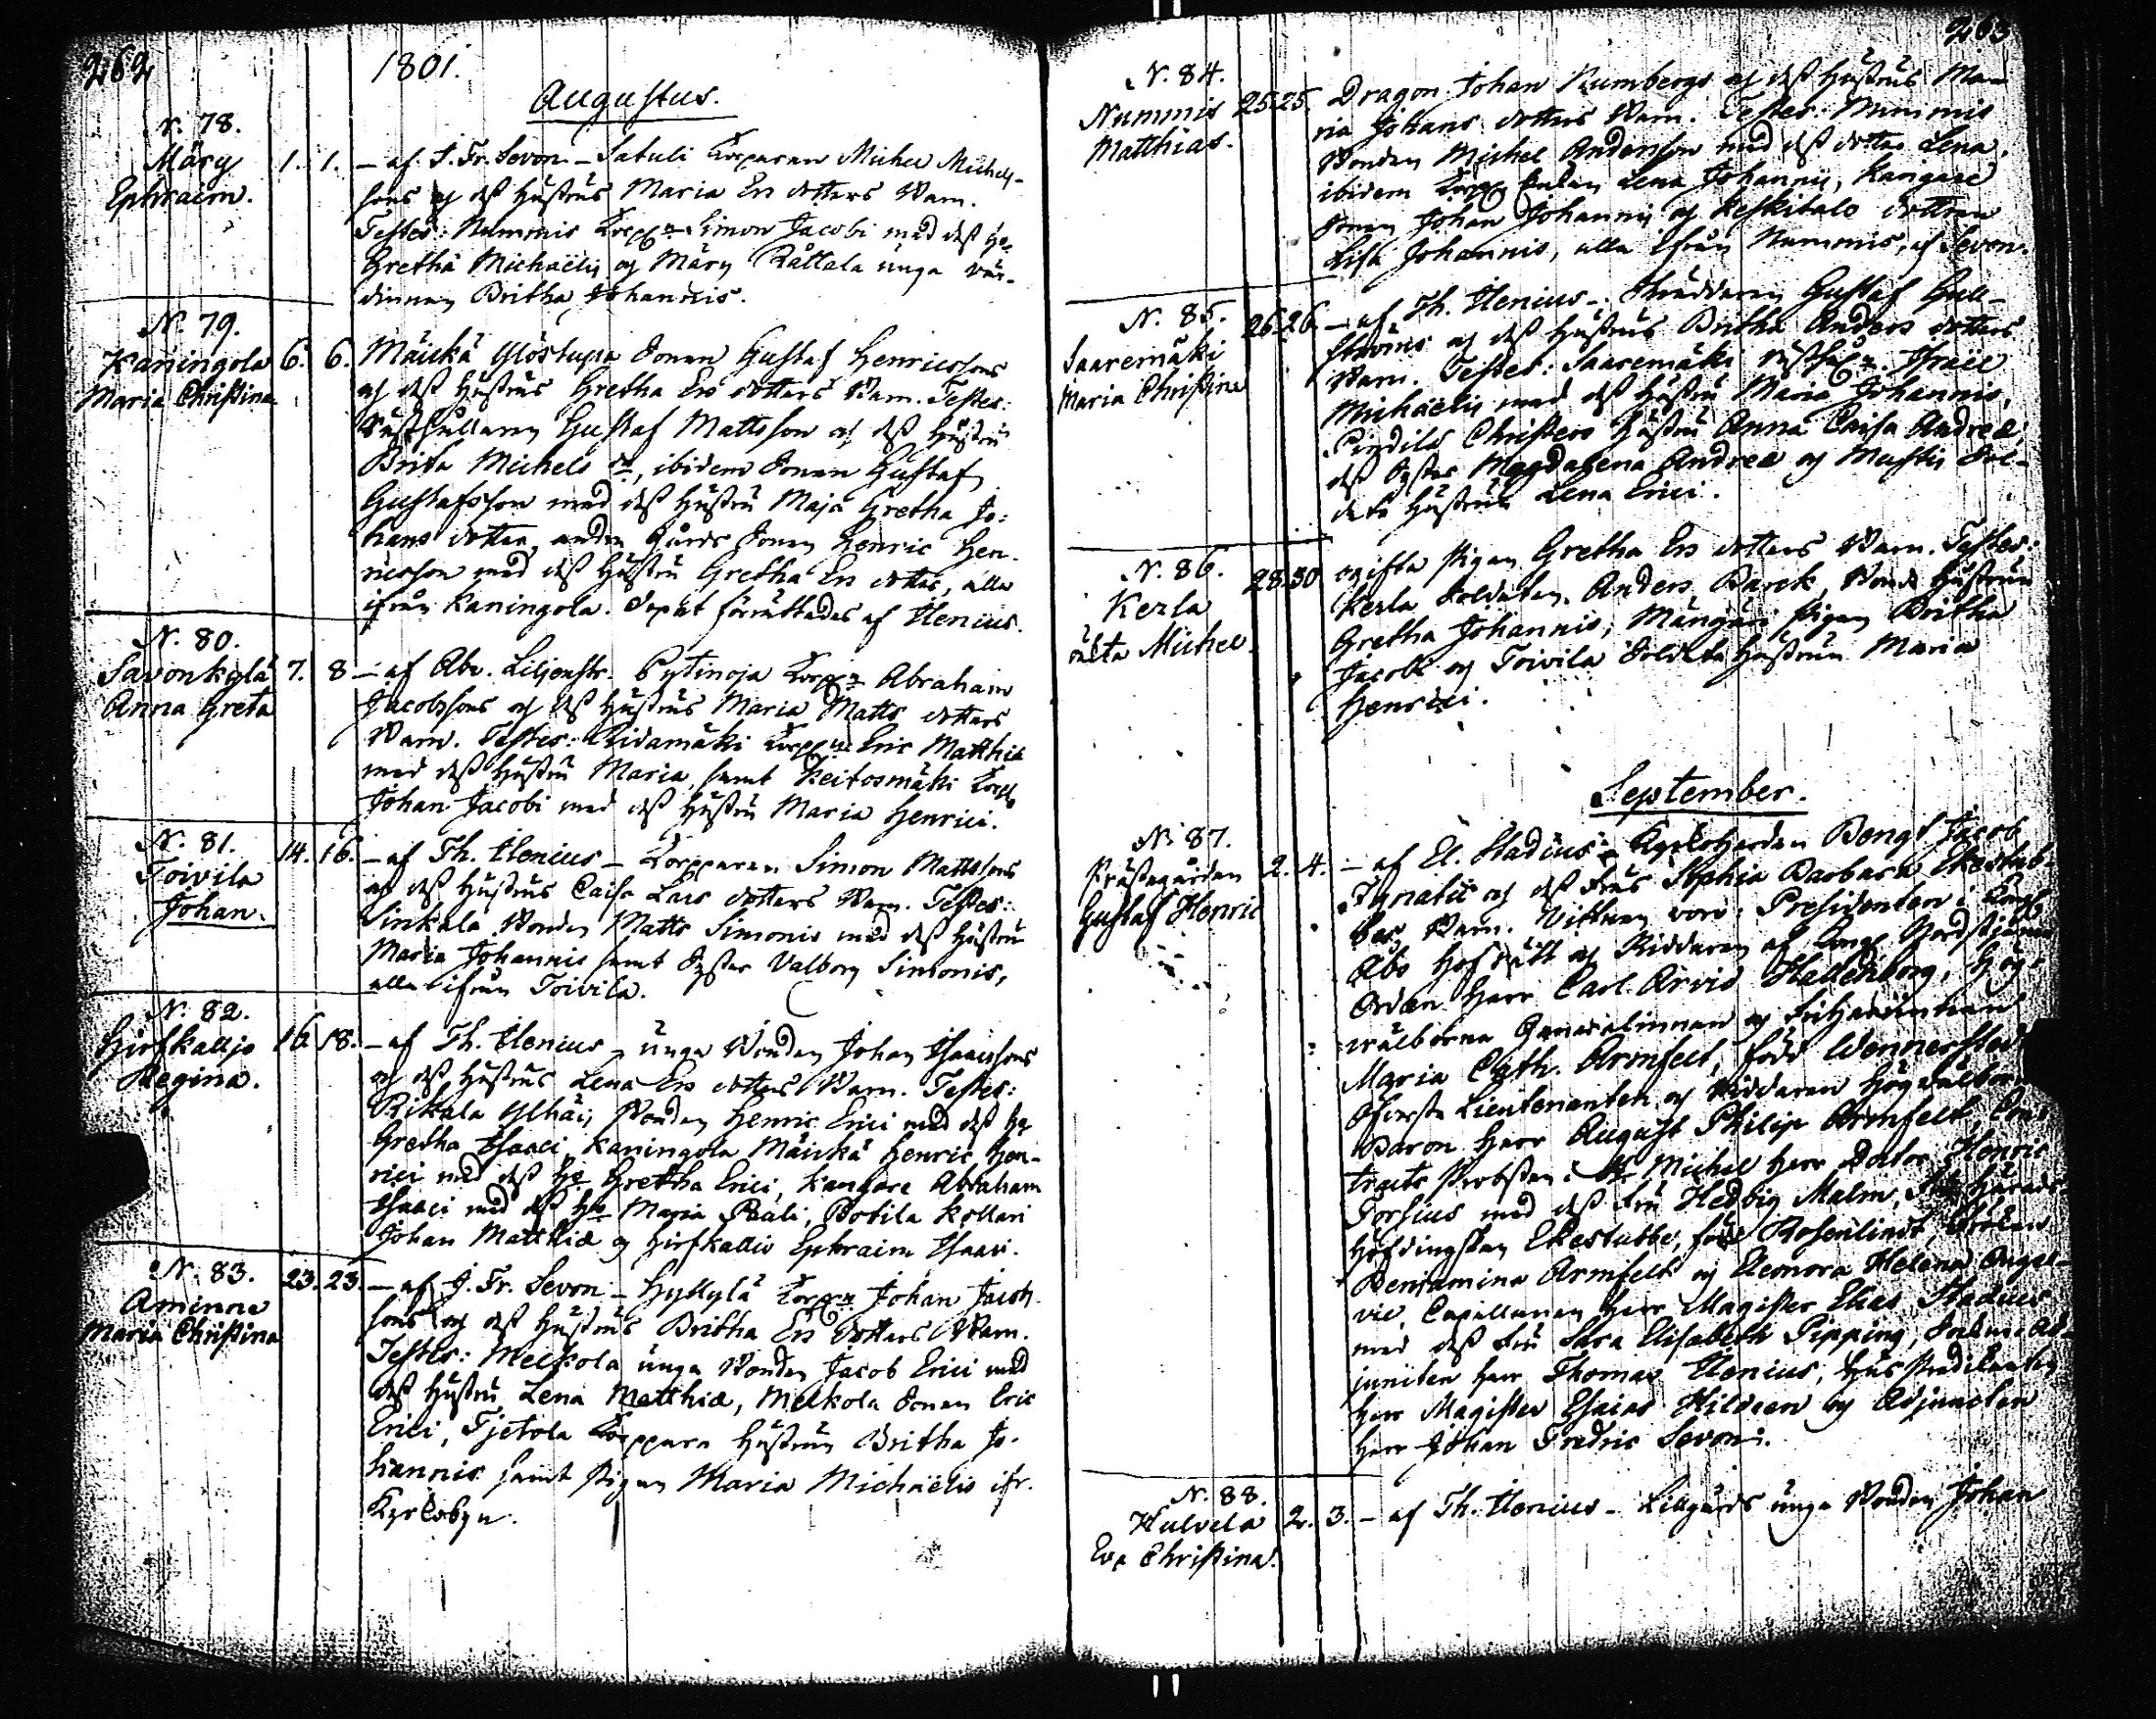 262
1801.
Augustus.
N. 78.
Märy
Ephraim.
1. 1. – af J. Fr. Sevon – Satuli Torparen Michel Michels-
sons och dess hustrus Maria Ers dotters Barn.
Testes: Nummis Simon Jacobi med dess
Gretha Michaëlis och Märy Rättala unga vär-
dinnan Britha Johannis.
N. 79.
Kaningola
Maria Christina
6. 6. Mäickä Ylöstupa Sonen Gustaf Henricssons
och dess hustrus Gretha Ers dotters Barn. Testes:
Rusthållaren Gustaf Mattsson och dess hustru
Brita Michels dr, ibidem Sonen Gustaf
Gustafsson med dess hustru Maja Gretha Jo-
hans dotter, andra gårds Sonen Henric Hen-
ricsson med dess hustru Gretha Ers dotter, alla
ifrån Kaningola. Dopet förrättades af Ilenius.
N. 80.
Savonkylä
Anna Greta
7. 8 – af Abr. Liljenstr. Pytinoja Abraham
Jacobssons och dess hustrus Maria Matts dotters
Barn. Testes: Eric Matthiæ
med dess hustru Maria, samt Keitosmäki
Johan Jacobi med dess hustru Maria Henrici.
N. 81.
Toivila
Johan.
14. 16. – af Th. Ilenius – Torparen Simon Mattssons
och dess hustrus Caisa Lars dotters Barn. Testes:
Sinkala Bonden Matts Simonis med dess hustru
Maria Johannis samt Syster Valborg Simonis,
alla ifrån Toivila.
N. 82.
Hirfkallio
Regina.
16. 18. – af Th. Ilenius – unga Bonden Johan Isaacssons
och dess hustrus Lena Ers dotters Barn. Testes:
Rikala Ylhäis Bonden Henric Erici med dess
Gretha Isaaci, Kaningola Mäickä Henric Hen-
rici med dess Gretha Erici, Kangare Abraham
Isaaci med dess Maria Pauli, Potila Kollari
Johan Matthiæ och Hirfkallio Ephraim Isaaci.
N. 83.
Aminne
Maria Christina
23. 23. – af J. Fr. Sevon – Hyllylä Johan Jacobs-
sons och dess hustrus Britha Ers dotters Barn.
Testes: Melkola unga Bonden Jacob Erici med
dess hustru Lena Matthiæ, Melkola Sonen Eric
Erici, Tjetola Torpare hustrun Britha Jo-
hannis samt pigan Maria Michaëlis ifr.
Kyrkobyn.
263
N. 84.
Nummis
Matthias.
25. 25. Dragon Johan Rumbergs och dess hustrus Ma-
ria Johans dotters Barn. Testes: Nummis
Bonden Michel Andersson med dess dotter Lena,
ibidem Enkan Lena Johannis, Kangare
Sonen Johan Johannis och Keskitalo dottren
Lisa Johannis, alla ifrån Nummis, af Sevon.
N. 85.
Saaremäki
Maria Christina
26. 26. – af Th. Ilenius – Skräddaren Gustaf
och dess hustrus Britha Anders dotters
Barn. Testes: Saaremäki Israel
Michaëlis med dess hustru Maria Johannis,
Christers hustru Anna Caisa Andreæ,
dess Syster Magdalena Andreæ och Mustis Sol-
date hustrun Lena Erici.
N. 86.
Kerla
oäkta Michel.
28. 30 ogifta pigan Gretha Ers dotters Barn. Testes:
Kerla Soldaten Anders Barck, Bonde hustrun
Gretha Johannis, pigan Britha
Jacobi och Toivila Soldate hustrun Maria
Henrici.
September.
N. 87.
Prästegården
Gustaf Henric
2. 4. – af El. Stadius – Kyrkoherden Bengt Jacob
Ignatii och dess Frus Sophia Barbara Ekestub-
bes Barn. Vittnen voro: Presidenten i Kongl.
Åbo Hofrätt och Riddaren af Kongl. Nordstjerne
Orden Herr Carl Arvid Hallenborg, Hög-
välborna Generalinnan och Friherrinnan
Maria Cath. Armfelt, född Wennerstedt,
Öfverste Lieutenanten och Riddaren Högvälborne
Baron Herr August Philip Armfelt, Con-
tracts Probsten i St Michel Herr Doctor Henric
Forsius med dess Fru Hedvig Malm, Härads-
höfdingskan Ekestubbe, född Rosenlindt, Fröken
Benjamina Armfelt och Eleonora Helena
Capellanen Herr Magister Elias Stadius
med dess Fru Sara Elisabeth Pipping, Ad-
juncten Herr Thomas Ilenius, Huspredikanten
Herr Magister Esaias Hildeen och Adjuncten
Herr Johan Fredric Sevon.
N. 88.
Hulvela
Eva Christina.
2. 3. – af Th. Ilenius – Lillgårds unga Bonden Johan